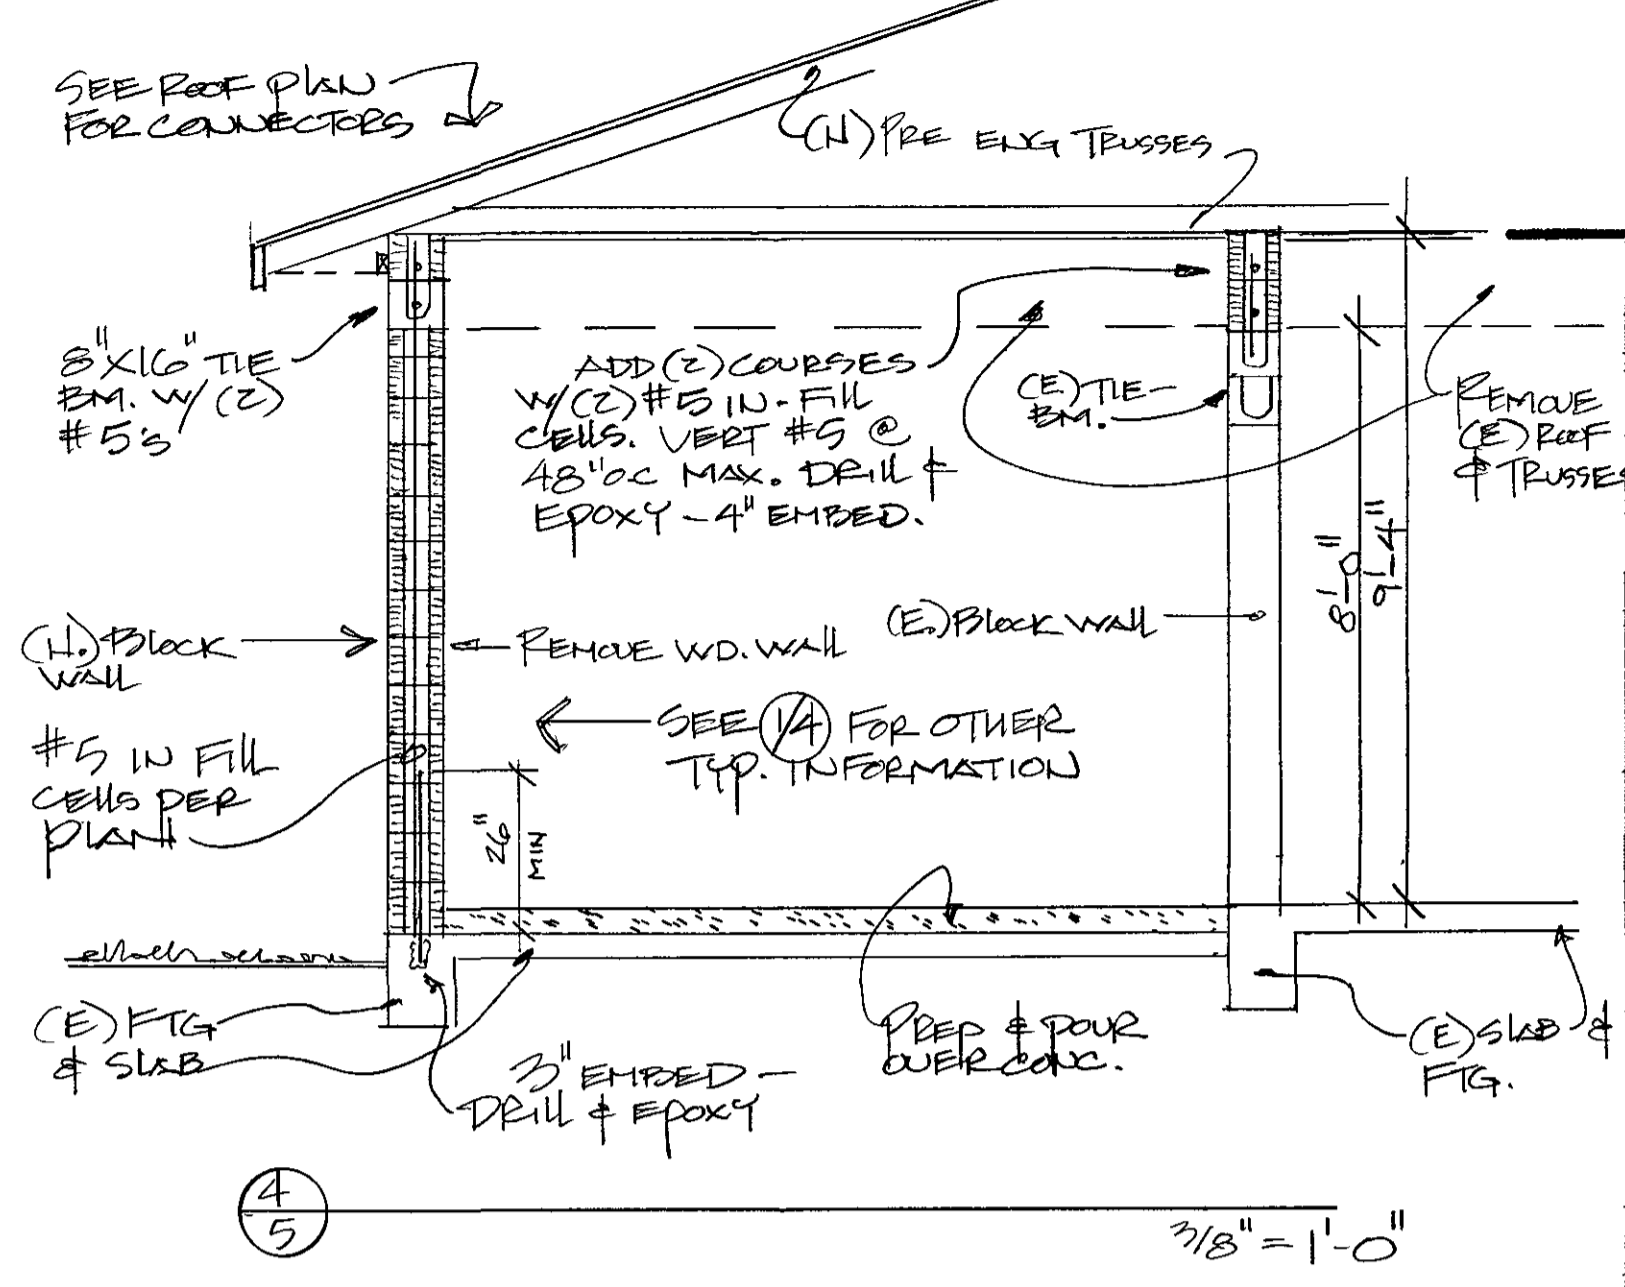 SEE ROOF PLAN
FOR CONNECTORS
(N) PRE ENG TRUSSES
8"X16" TIE
BM. W/ (2)
#5's
ADD (2) COURSES
W/ (2) #5 IN-FILL
CELLS. VERT #5 @
48" OC MAX. DRILL &
EPOXY - 4" EMBED.
(E) TIE-
BM.
REMOVE
(E) ROOF
& TRUSSES
8'-0"
9'-4"
(N.) BLOCK
WALL
REMOVE WD. WALL
(E.) BLOCK WALL
SEE 1/4 FOR OTHER
TYP. INFORMATION
#5 IN FILL
CELLS PER
PLAN
26"
MIN
(E) FTG
& SLAB
3" EMBED -
DRILL & EPOXY
PREP & POUR
OVER CONC.
(E) SLAB &
FTG.
4
5
3/8" = 1'-0"